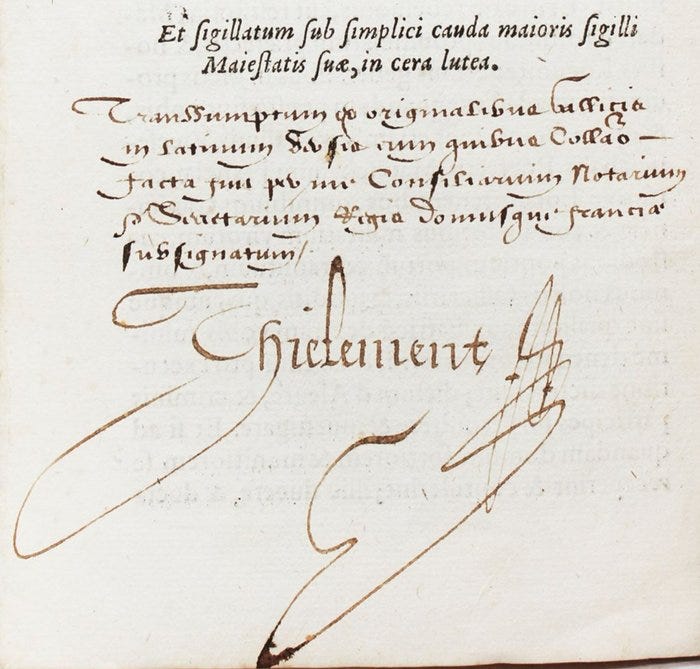 Et sigillatum sub simplici cauda maioris sigilli
Maiestatis suæ, in cera lutea.
Transsumptum ex originalibus Gallicis
in latinum versis cum quibus Collaõ
facta fuit per me Consiliarium Notarium
& Secretarium Regis domusque franciæ
subsignatum/
Thielement